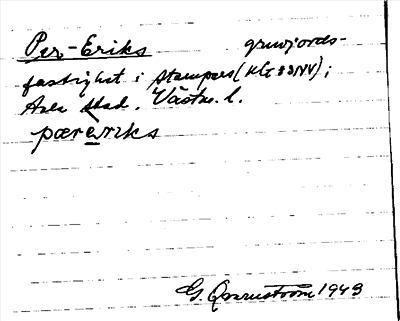 Per-Eriks gruvjords-
fastighet i Stampers (Kls 33NV);
Sala stad. Västm. l.
pæreriks
G. Qvarnström 1943